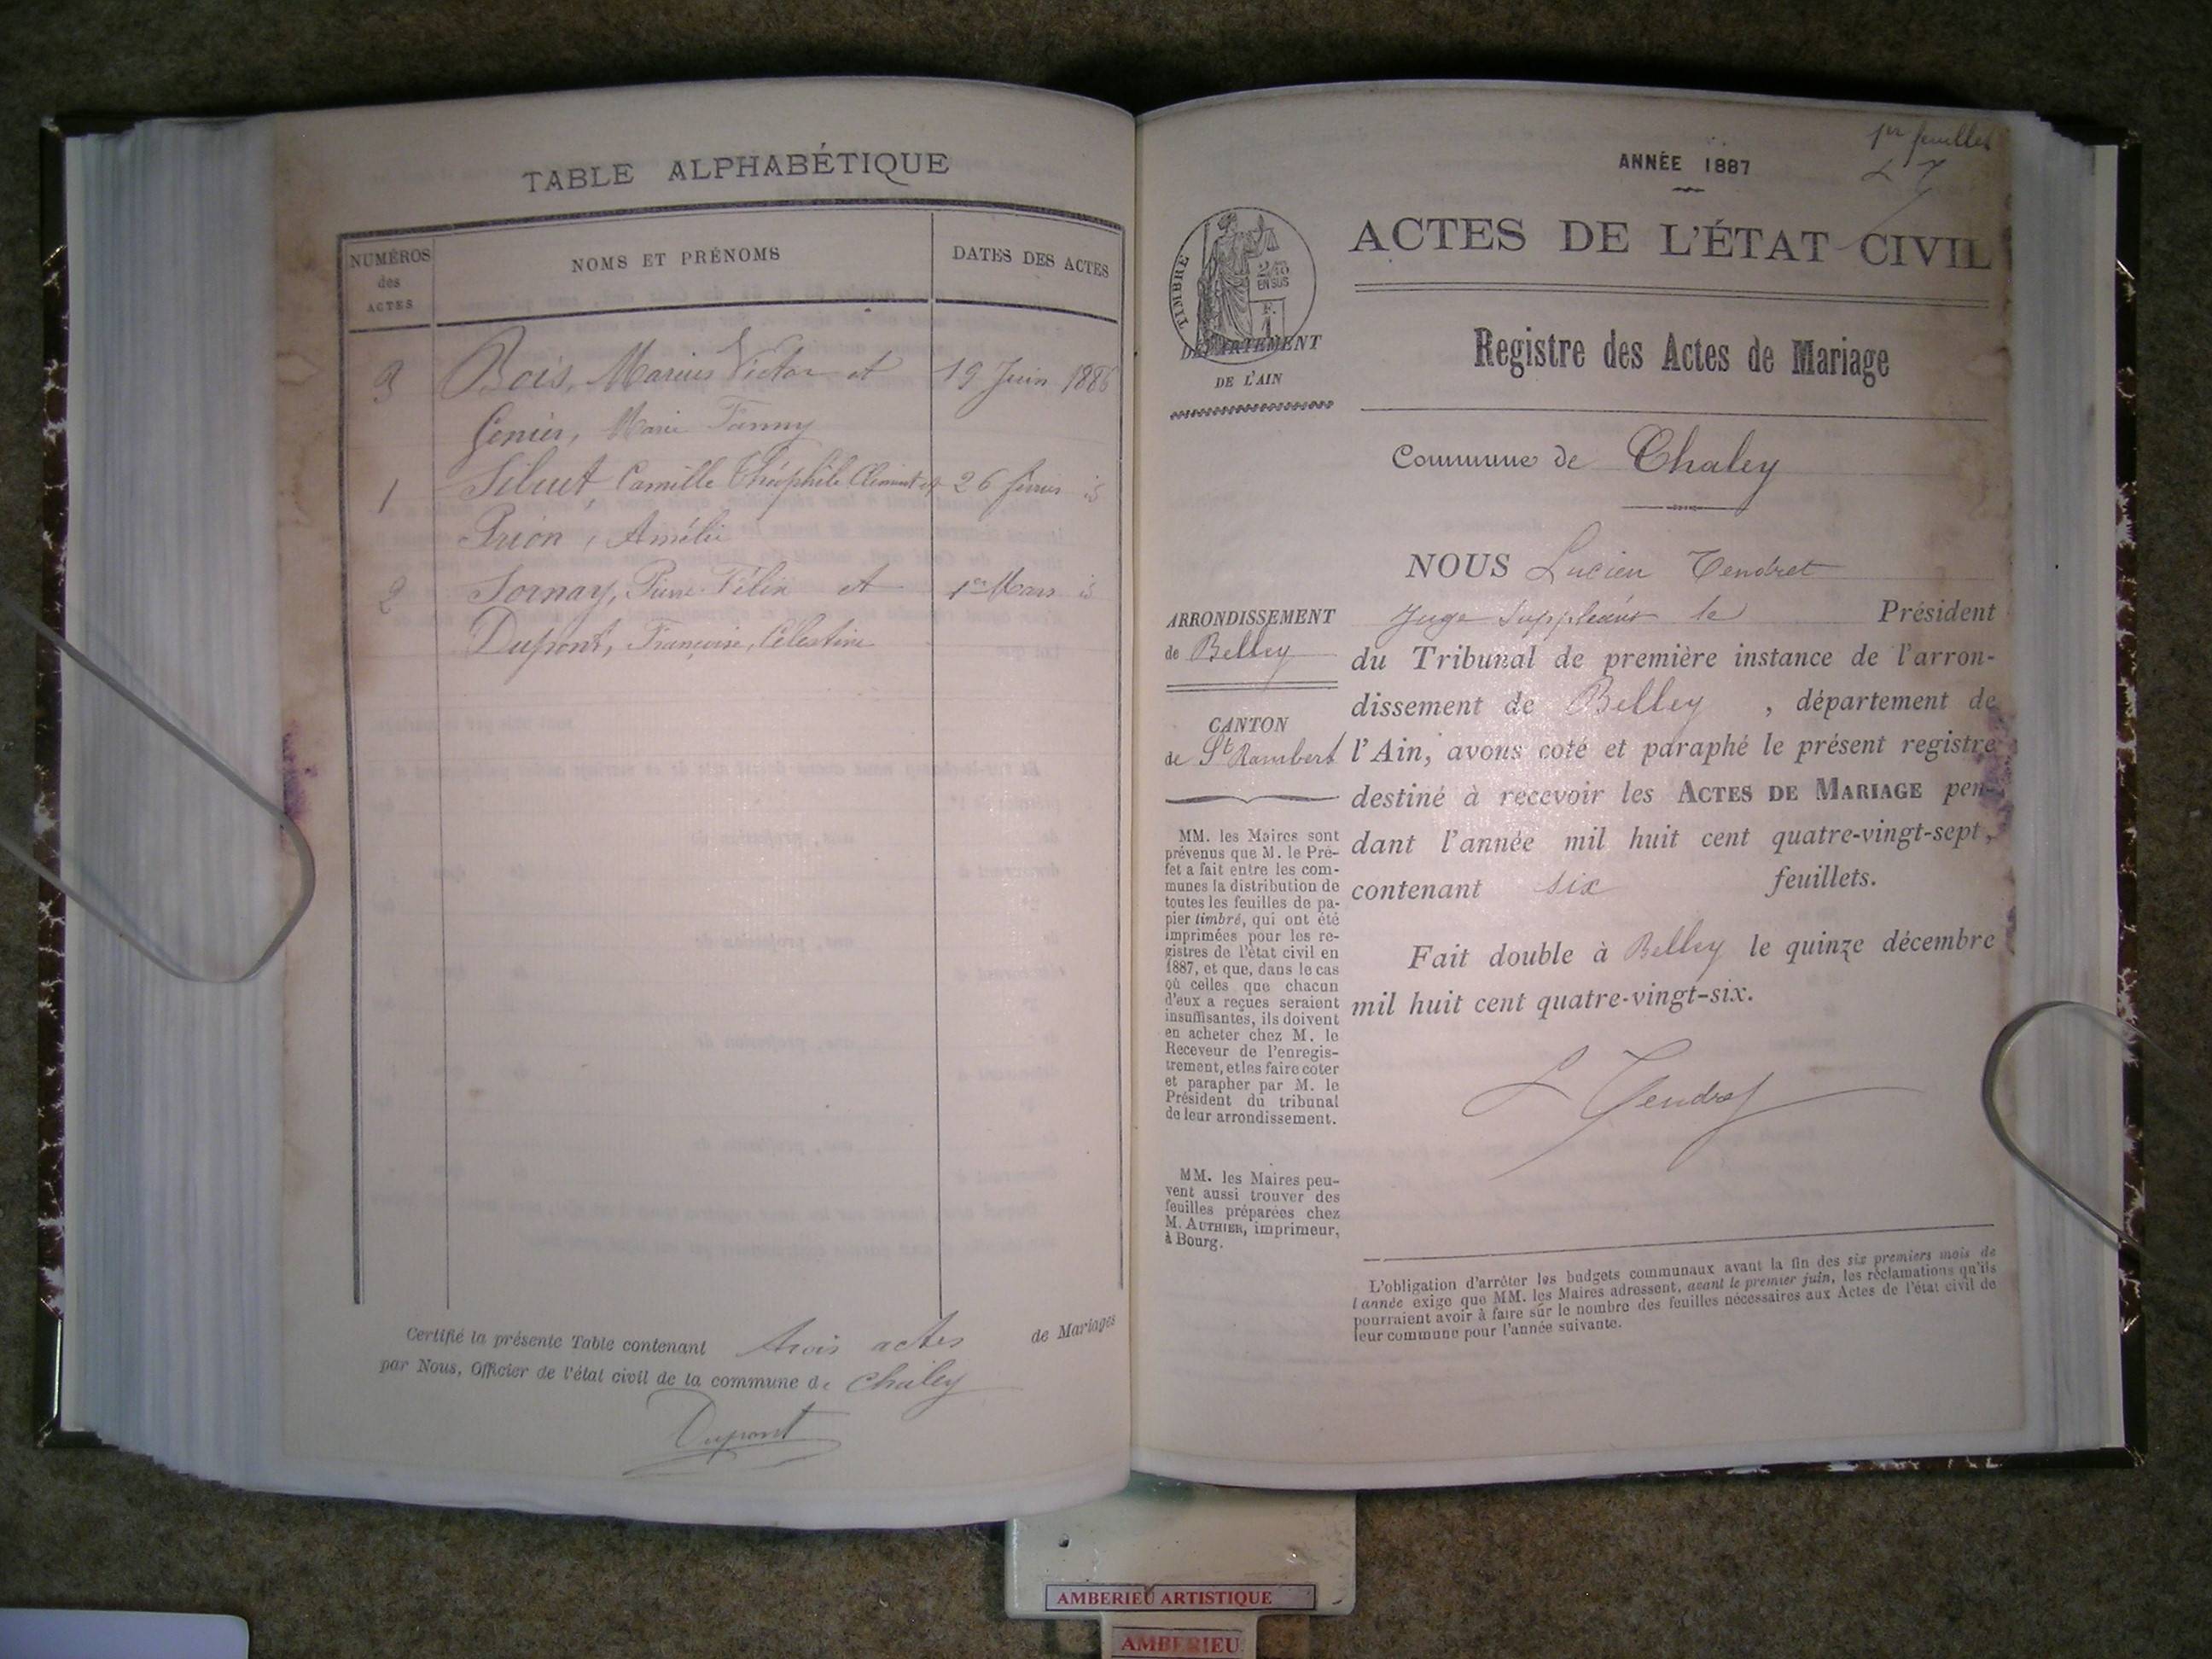 TABLE ALPHABÉTIQUE
NUMÉROS des ACTES
NOMS ET PRÉNOMS
DATES DES ACTES
3 Bois, Marius Victor et 19 Juin 1886
Genier, Marie Fanny
1 Siluet, Camille Théophile Clément et 26 février id
Prion, Amélie
2 Sornay, Pierre Félix et 1er Mars id
Dupont, Françoise, Célestine
Certifié la présente Table contenant trois actes de Mariages
par Nous, Officier de l'état civil de la commune de Chaley
Dupont
1er feuillet
L T
ANNÉE 1887
ACTES DE L'ÉTAT CIVIL
TIMBRE
2/10
EN SUS
F.
1
DÉPARTEMENT
DE L'AIN
Registre des Actes de Mariage
Commune de Chaley
ARRONDISSEMENT
de Belley
CANTON
de St Rambert
MM. les Maires sont
prévenus que M. le Pré-
fet a fait entre les com-
munes la distribution de
toutes les feuilles de pa-
pier timbré, qui ont été
imprimées pour les re-
gistres de l'état civil en
1887, et que, dans le cas
où celles que chacun
d'eux a reçues seraient
insuffisantes, ils doivent
en acheter chez M. le
Receveur de l'enregis-
trement, et les faire coter
et parapher par M. le
Président du tribunal
de leur arrondissement.
MM. les Maires peu-
vent aussi trouver des
feuilles préparées chez
M. AUTHIER, imprimeur,
à Bourg.
NOUS Lucien Tendret
Juge Suppléant le Président
du Tribunal de première instance de l'arron-
dissement de Belley , département de
l'Ain, avons coté et paraphé le présent registre
destiné à recevoir les ACTES DE MARIAGE pen-
dant l'année mil huit cent quatre-vingt-sept,
contenant six feuillets.
Fait double à Belley le quinze décembre
mil huit cent quatre-vingt-six.
L Tendret
L'obligation d'arrêter les budgets communaux avant la fin des six premiers mois de
l'année exige que MM. les Maires adressent, avant le premier juin, les réclamations qu'ils
pourraient avoir à faire sur le nombre des feuilles nécessaires aux Actes de l'état civil de
leur commune pour l'année suivante.
AMBERIEU ARTISTIQUE
AMBERIEU